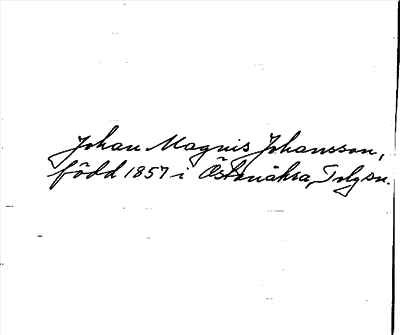 Johan Magnis Johansson,
född 1857 i Östanåkra, Tolg sn.